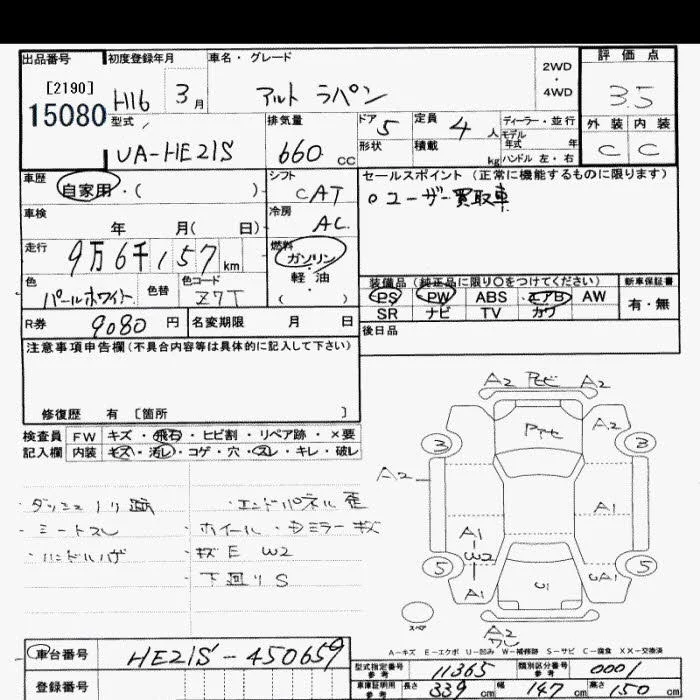 出品番号 初度登録年月 車名・グレード 2WD・4WD 評価点
[2190] 15080 H16 3月 アルト ラパン 3.5
型式 排気量 ドア 定員 ディーラー・並行 外装 内装
UA-HE21S 660 CC 5 4人 モデル年式 年 C C
形状 積載 kg ハンドル 左・右
車歴 自家用・( ) シフト CAT セールスポイント (正常に機能するものに限ります)
車検 年 月( 日) 冷房 AC 。ユーザー買取車
走行 9万6千157km 燃料 ガソリン・軽・油 ( )
色 パールホワイト 色替 色コード Z7T
装備品 (純正品に限り○をつけてください) 新車保証書
PS PW ABS エアB AW 有・無
SR ナビ TV カワ
R券 9080円 名変期限 月 日 後日品
注意事項申告欄(不具合内容等は具体的に記入して下さい)
修復歴 有 [箇所 ]
検査員 FW キズ・飛石・ヒビ割・リペア跡・×要
記入欄 内装 キズ・汚レ・コゲ・穴・スレ・キレ・破レ
・エンドパネル歪
・ホイール・
・キズE W2
・下回りS
A2 A2
A2
3 3
A2
A1
A1
W2
5 5
A1
U1
スペア
A2
A-キズ E-エクボ U-凹み W-補修跡 S-サビ C-腐食 XX-交換済
車台番号 HE21S-450659
登録番号
型式指定番号 参考 11365 類別区分番号 参考 0001
車庫証明用 参考 長さ 339cm 幅 147cm 高さ 150cm